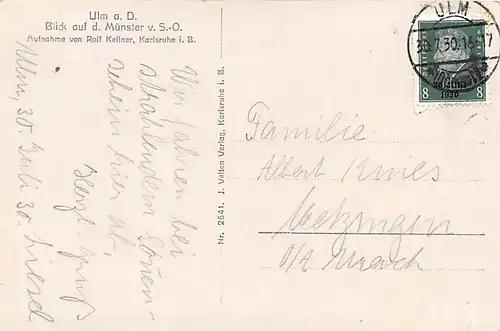 Ulm a. D.
Blick auf d. Münster v. S.-O.
Aufnahme von Rolf Kellner, Karlsruhe i. B.
Ulm, 30. Juli 30.
Wir fahren bei
strahlendem Sonnen-
schein hier ab.
Herzl. Gruß
Liesel
Nr. 2641. J. Velten Verlag, Karlsruhe i. B.
ULM
30.7.30.16-17
8 8
1930
Familie
Albert Knies
Metzingen
O/A Urach